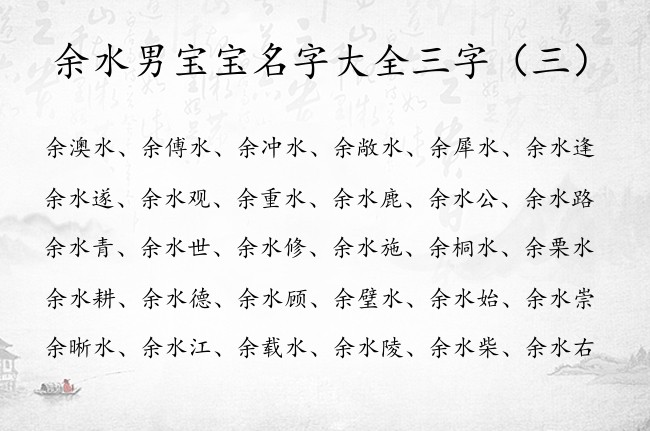 余水男宝宝名字大全三字（三）
余澳水、余傅水、余冲水、余敞水、余犀水、余水逢
余水遂、余水观、余重水、余水鹿、余水公、余水路
余水青、余水世、余水修、余水施、余桐水、余栗水
余水耕、余水德、余水顾、余璧水、余水始、余水崇
余晰水、余水江、余载水、余水陵、余水柴、余水右